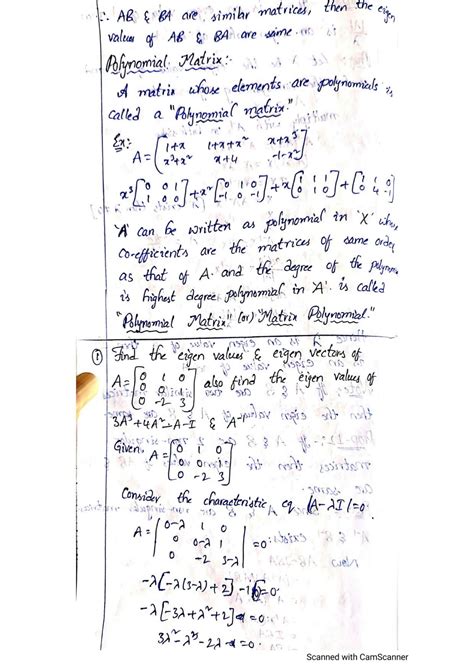 ∴ AB & BA are similar matrices, then the eigen
values of AB & BA are same.
Polynomial Matrix:-
A matrix whose elements are polynomials is
called a "Polynomial matrix."
Ex:- A = [ 1+x 1+x+x² x+x³
x³+x² x+4 -1-x² ]
x³ [ 0 0 1 ; 1 0 0 ] + x² [ 0 1 0 ; 1 0 -1 ] + x [ 1 1 1 ; 0 1 0 ] + [ 1 1 0 ; 0 4 -1 ]
'A' can be written as polynomial in 'X' whose
co-efficients are the matrices of same order
as that of A. and the degree of the polynom
is highest degree polynomial in 'A'. is called
"Polynomial Matrix" (or) "Matrix Polynomial."
① Find the eigen values & eigen vectors of
A = [ 0 1 0 ; 0 0 1 ; 0 -2 3 ] also find the eigen values of
3A³+4A²-A-I & A⁻¹
Given, A = [ 0 1 0 ; 0 0 1 ; 0 -2 3 ]
Consider the characteristic eq |A-λI|=0
A = | 0-λ 1 0 ; 0 0-λ 1 ; 0 -2 3-λ | =0
-λ[-λ(3-λ)+2] -1[0]=0
-λ[-3λ+λ²+2] =0
3λ²-λ³-2λ =0
Scanned with CamScanner